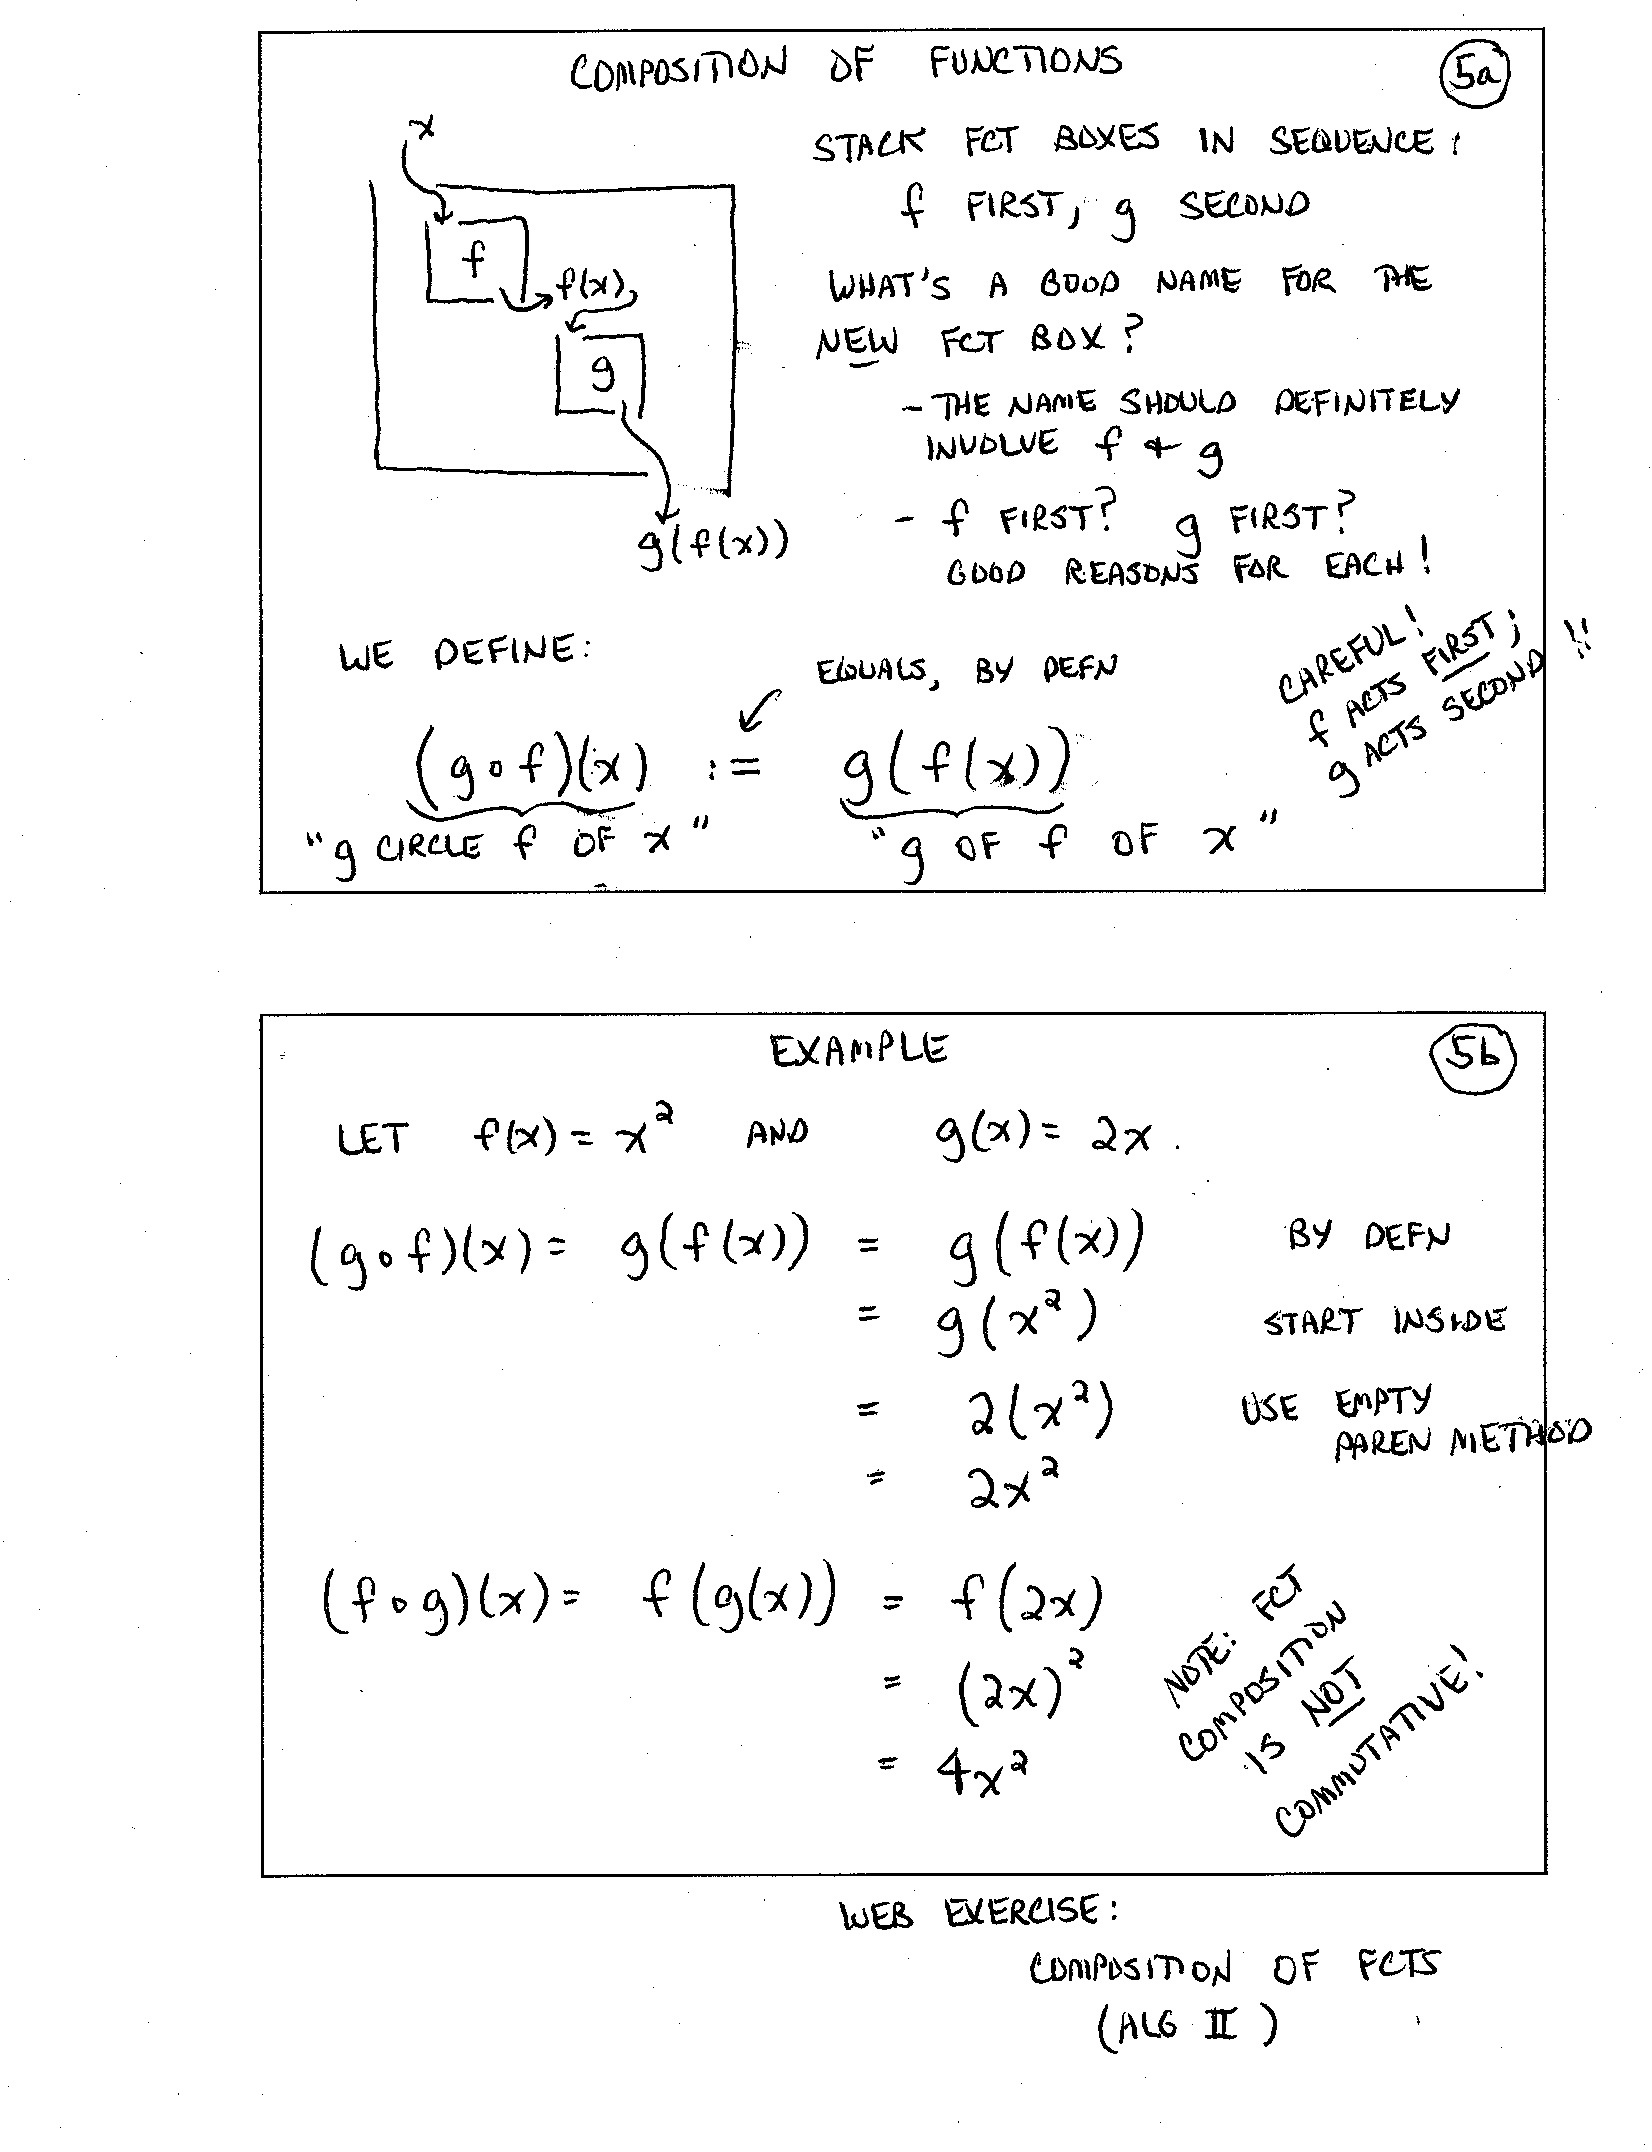 COMPOSITION OF FUNCTIONS
5a
x
f
f(x)
g
g(f(x))
STACK FCT BOXES IN SEQUENCE:
f FIRST, g SECOND
WHAT'S A GOOD NAME FOR THE
NEW FCT BOX?
- THE NAME SHOULD DEFINITELY
INVOLVE f + g
- f FIRST? g FIRST?
GOOD REASONS FOR EACH!
WE DEFINE:
EQUALS, BY DEFN
CAREFUL!
f ACTS FIRST;
g ACTS SECOND!!
(g∘f)(x) := g(f(x))
"g CIRCLE f OF x" "g OF f OF x"
EXAMPLE
5b
LET f(x) = x² AND g(x) = 2x.
(g∘f)(x) = g(f(x)) = g(f(x)) BY DEFN
= g(x²) START INSIDE
= 2(x²) USE EMPTY
PAREN METHOD
= 2x²
(f∘g)(x) = f(g(x)) = f(2x)
= (2x)²
= 4x²
NOTE: FCT
COMPOSITION
IS NOT
COMMUTATIVE!
WEB EXERCISE:
COMPOSITION OF FCTS
(ALG II)